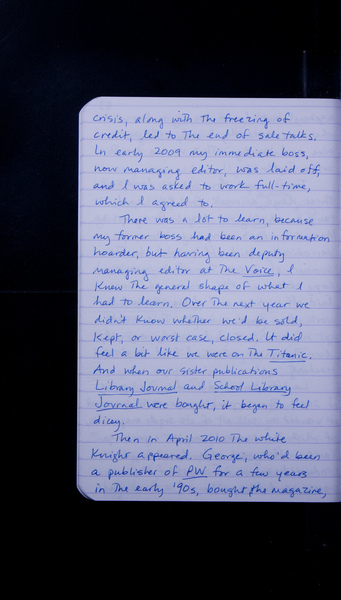 crisis, along with the freezing of
credit, led to the end of sale talks.
In early 2009 my immediate boss,
now managing editor, was laid off,
and I was asked to work full-time,
which I agreed to.
There was a lot to learn, because
my former boss had been an information
hoarder, but having been deputy
managing editor at The Voice, I
knew the general shape of what I
had to learn. Over the next year we
didn't know whether we'd be sold,
kept, or worst case, closed. It did
feel a bit like we were on the Titanic.
And when our sister publications
Library Journal and School Library
Journal were bought, it began to feel
dicey.
Then in April 2010 the white
Knight appeared. George, who'd been
a publisher of PW for a few years
in the early '90s, bought the magazine,